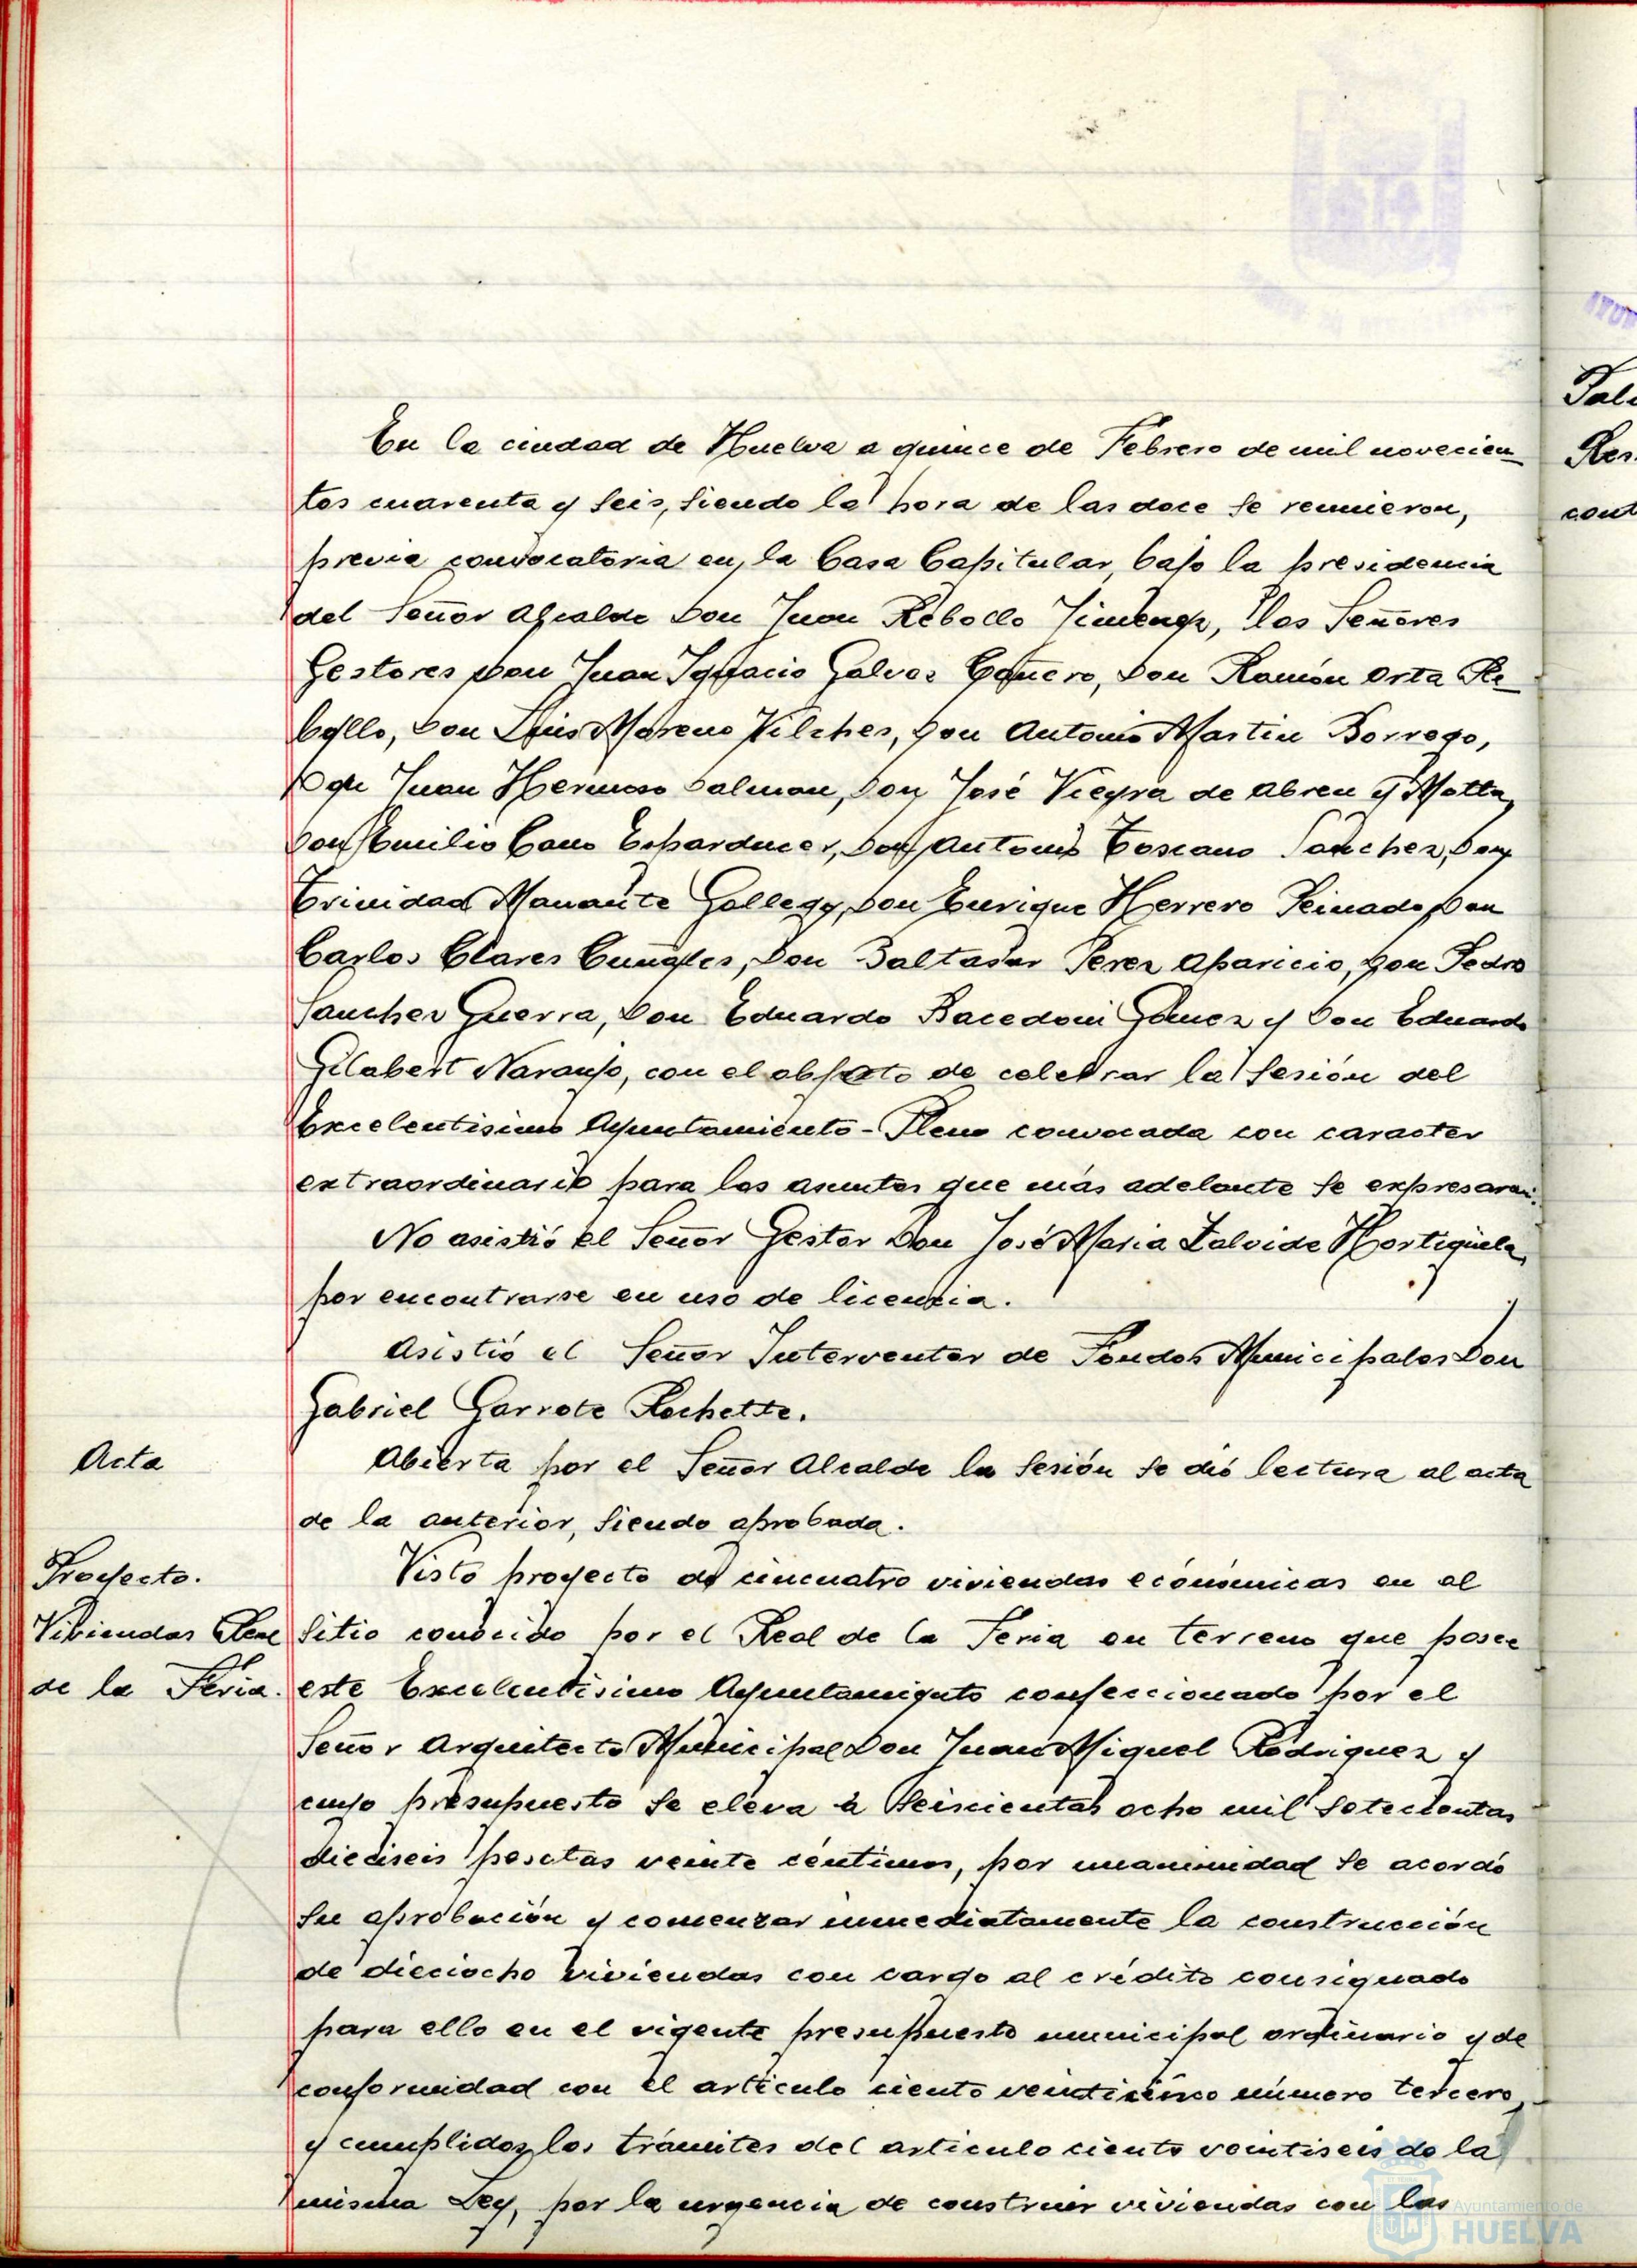 En la ciudad de Huelva a quince de Febrero de mil novecien-
tos cuarenta y seis, siendo la hora de las doce se reunieron,
previa convocatoria en la Casa Capitular, bajo la presidencia
del Señor Alcalde Don Juan Rebollo Jimenez, los Señores
Gestores Don Juan Ignacio Galvez Cañero, Don Ramón Orta Re-
bollo, Don Luis Moreno Vilches, Don Antonio Martin Borrego,
Don Juan Hermoso Dalman, Don José Vieyra de Abreu y Motta,
Don Emilio Cano Don Antonio Toscano Sanchez, Don
Trinidad Gallego, Don Enrique Herrero Peinado, Don
Carlos Clares Don Baltasar Perez Aparicio, Don Pedro
Sanchez Guerra, Don Eduardo Racedoni Gomez y Don Eduardo
Gilabert Naranjo, con el objeto de celebrar la sesión del
Excelentisimo Ayuntamiento-Pleno convocada con caracter
extraordinario para los asuntos que más adelante se expresaran.
No asistió el Señor Gestor Don José Maria Zalvide Hortigüela,
por encontrarse en uso de licencia.
Asistió el Señor Interventor de Fondos Municipales Don
Gabriel Garrote Rochette.
Acta
Abierta por el Señor Alcalde la sesión se dió lectura al acta
de la anterior, siendo aprobada.
Proyecto.
Viviendas Real
de la Feria.
Visto proyecto de viviendas económicas en el
sitio conocido por el Real de la Feria en terreno que posee
este Excelentisimo Ayuntamiento confeccionado por el
Señor Arquitecto Municipal Don Juan Miguel Rodriguez y
cuyo presupuesto se eleva a seiscientas ocho mil setecientas
dieciseis pesetas veinte céntimos, por unanimidad se acordó
su aprobación y comenzar inmediatamente la construcción
de dieciocho viviendas con cargo al crédito consignado
para ello en el vigente presupuesto municipal ordinario y de
conformidad con el articulo ciento veinticinco número tercero,
y cumplidos los trámites del articulo ciento veintiseis de la
misma Ley, por la urgencia de construir viviendas con las
Ayuntamiento de
HUELVA